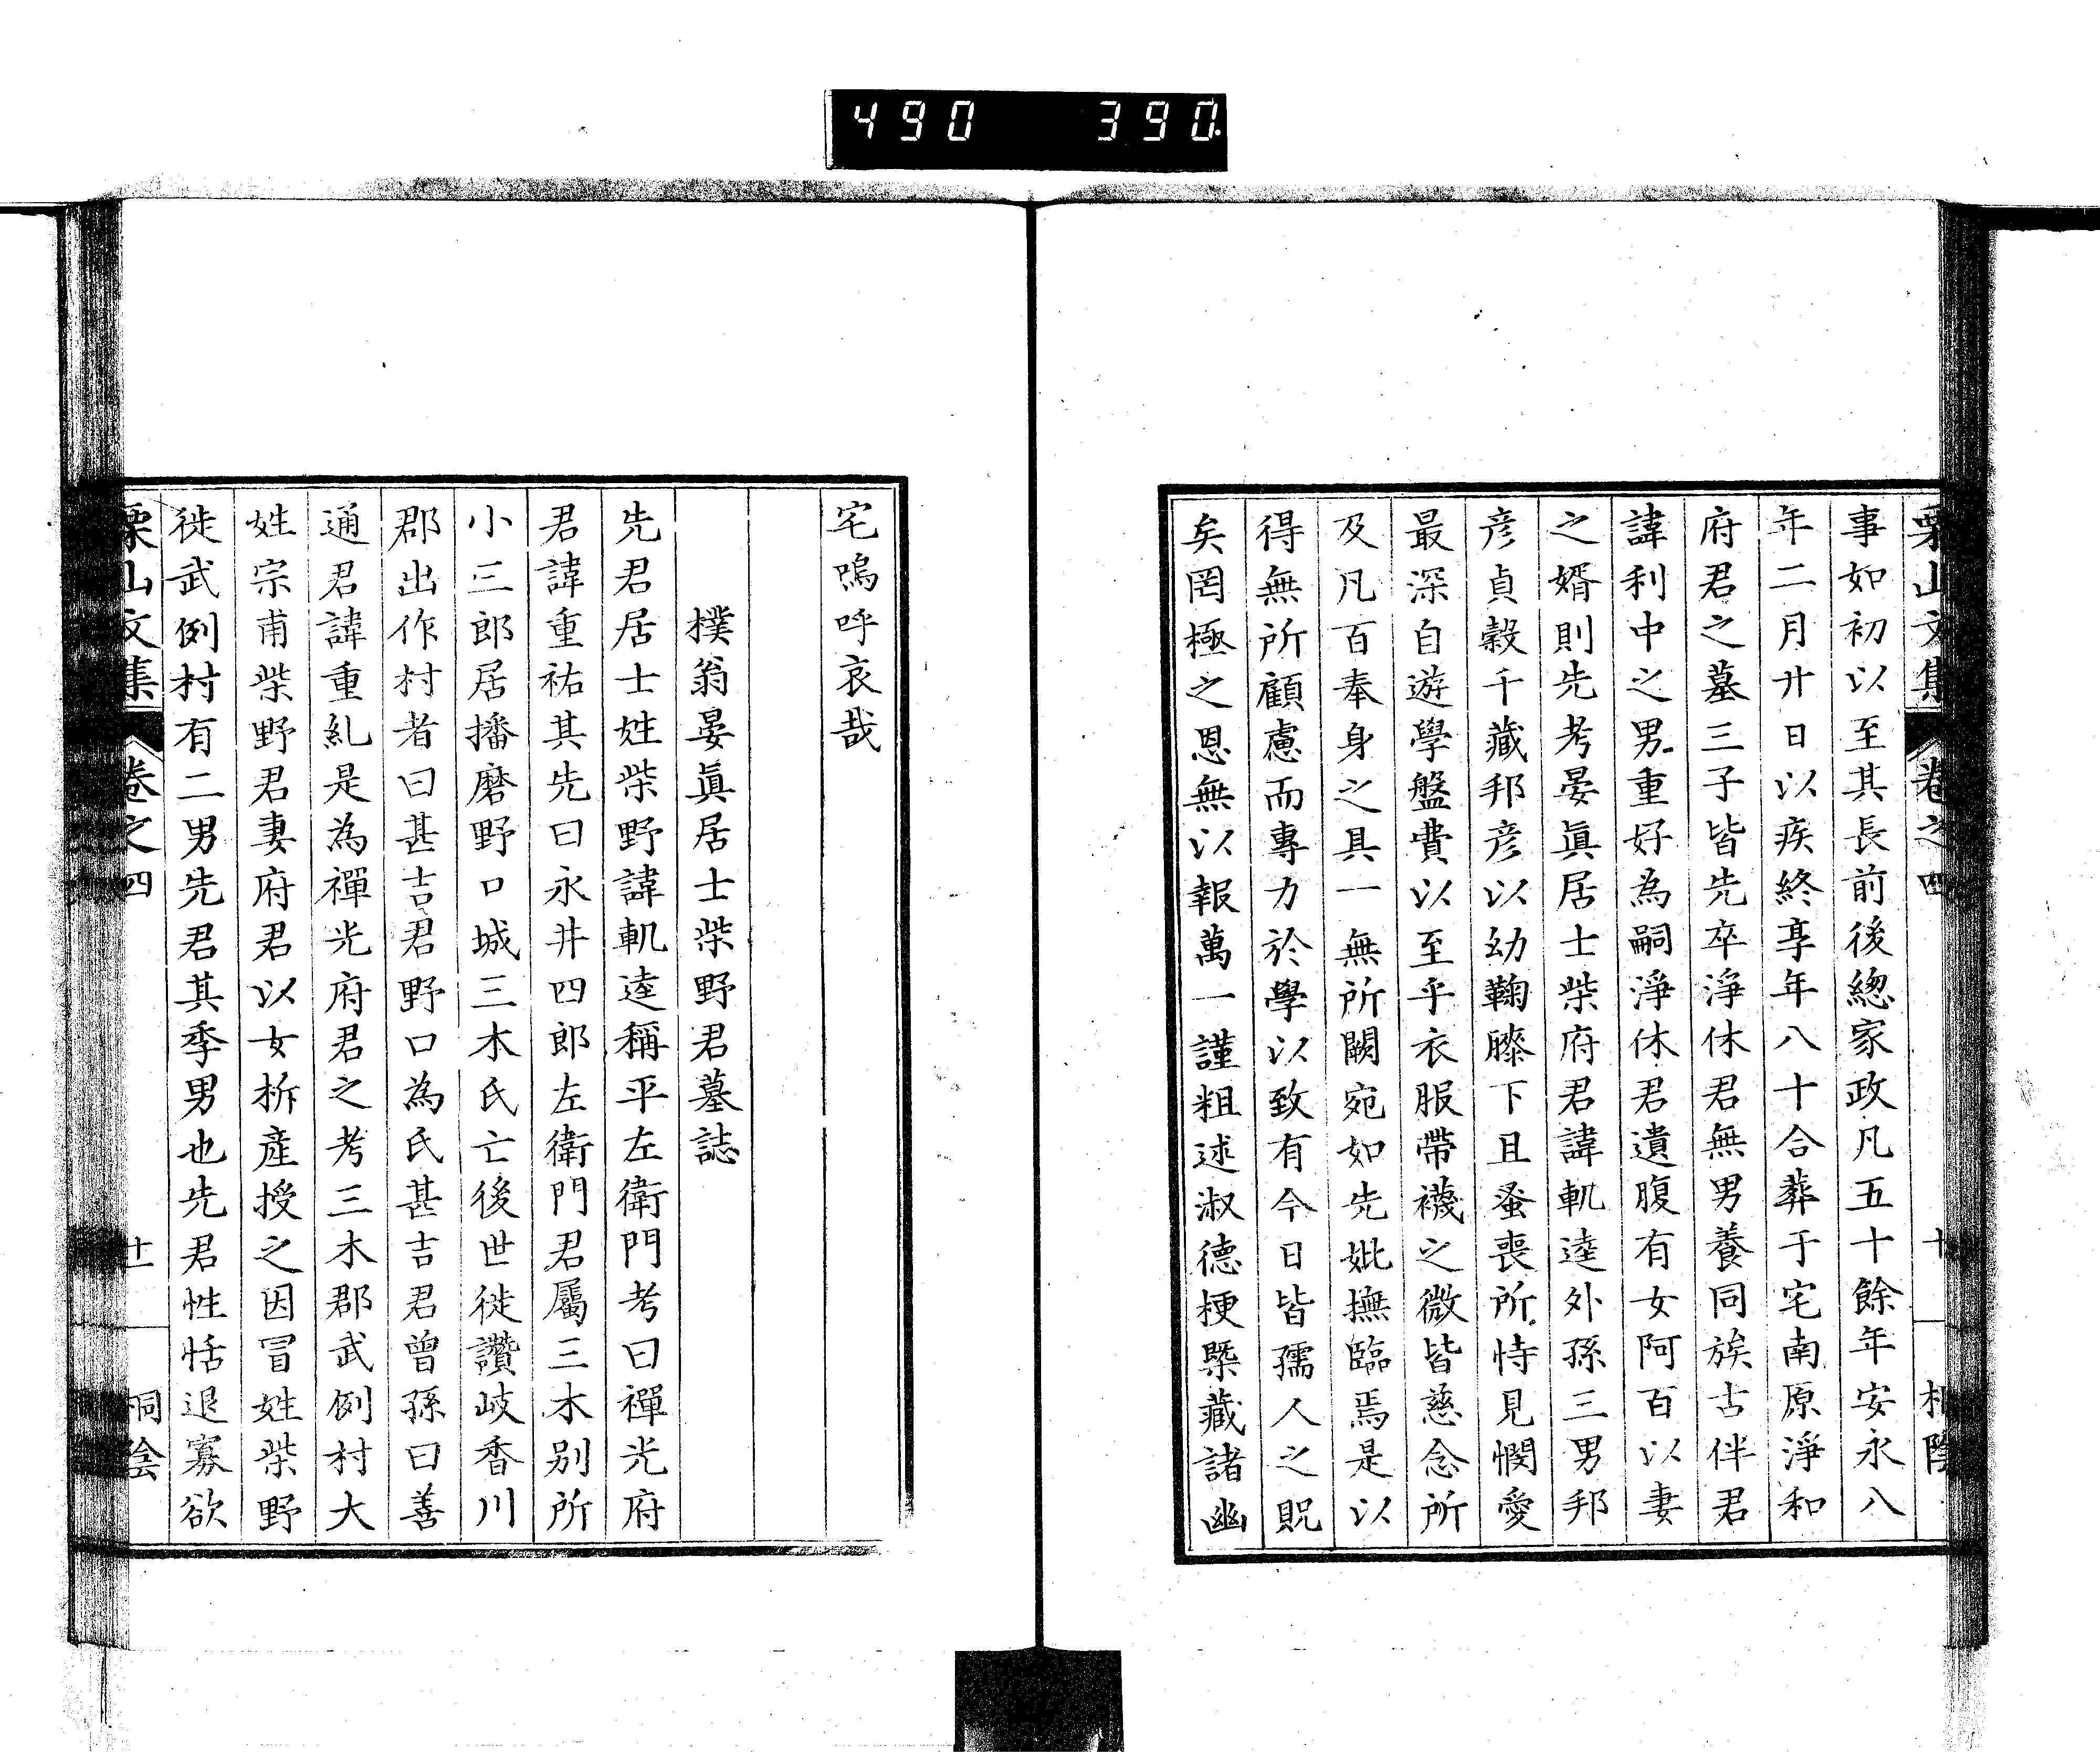 490 390
栗山文集 卷之四
事如初以至其長前後總家政凡五十餘年安永八
年二月廿日以疾終享年八十合葬于宅南原淨和
府君之墓三子皆先卒淨休君無男養同族古伴君
諱利中之男重好為嗣淨休君遺腹有女阿百以妻
之婿則先考晏眞居士柴府君諱軌逵外孫三男邦
彦貞穀千藏邦彦以幼鞠膝下且蚤喪所恃見憫愛
最深自遊學盤費以至乎衣服帶襪之微皆慈念所
及凡百奉身之具一無所闕宛如先妣撫臨焉是以
得無所顧慮而專力於學以致有今日皆孺人之貺
矣罔極之恩無以報萬一謹粗述淑德梗槩藏諸幽
宅嗚呼哀哉
樸翁晏眞居士柴野君墓誌
先君居士姓柴野諱軌逵稱平左衛門考曰禪光府
君諱重祐其先曰永井四郎左衛門君屬三木別所
小三郎居播磨野口城三木氏亡後世徙讚岐香川
郡出作村者曰甚吉君野口為氏甚吉君曾孫曰善
通君諱重糺是為禪光府君之考三木郡武例村大
姓宗甫柴野君妻府君以女析産授之因冒姓柴野
徙武例村有二男先君其季男也先君性恬退寡欲
栗山文集 卷之四 十一 桐陰